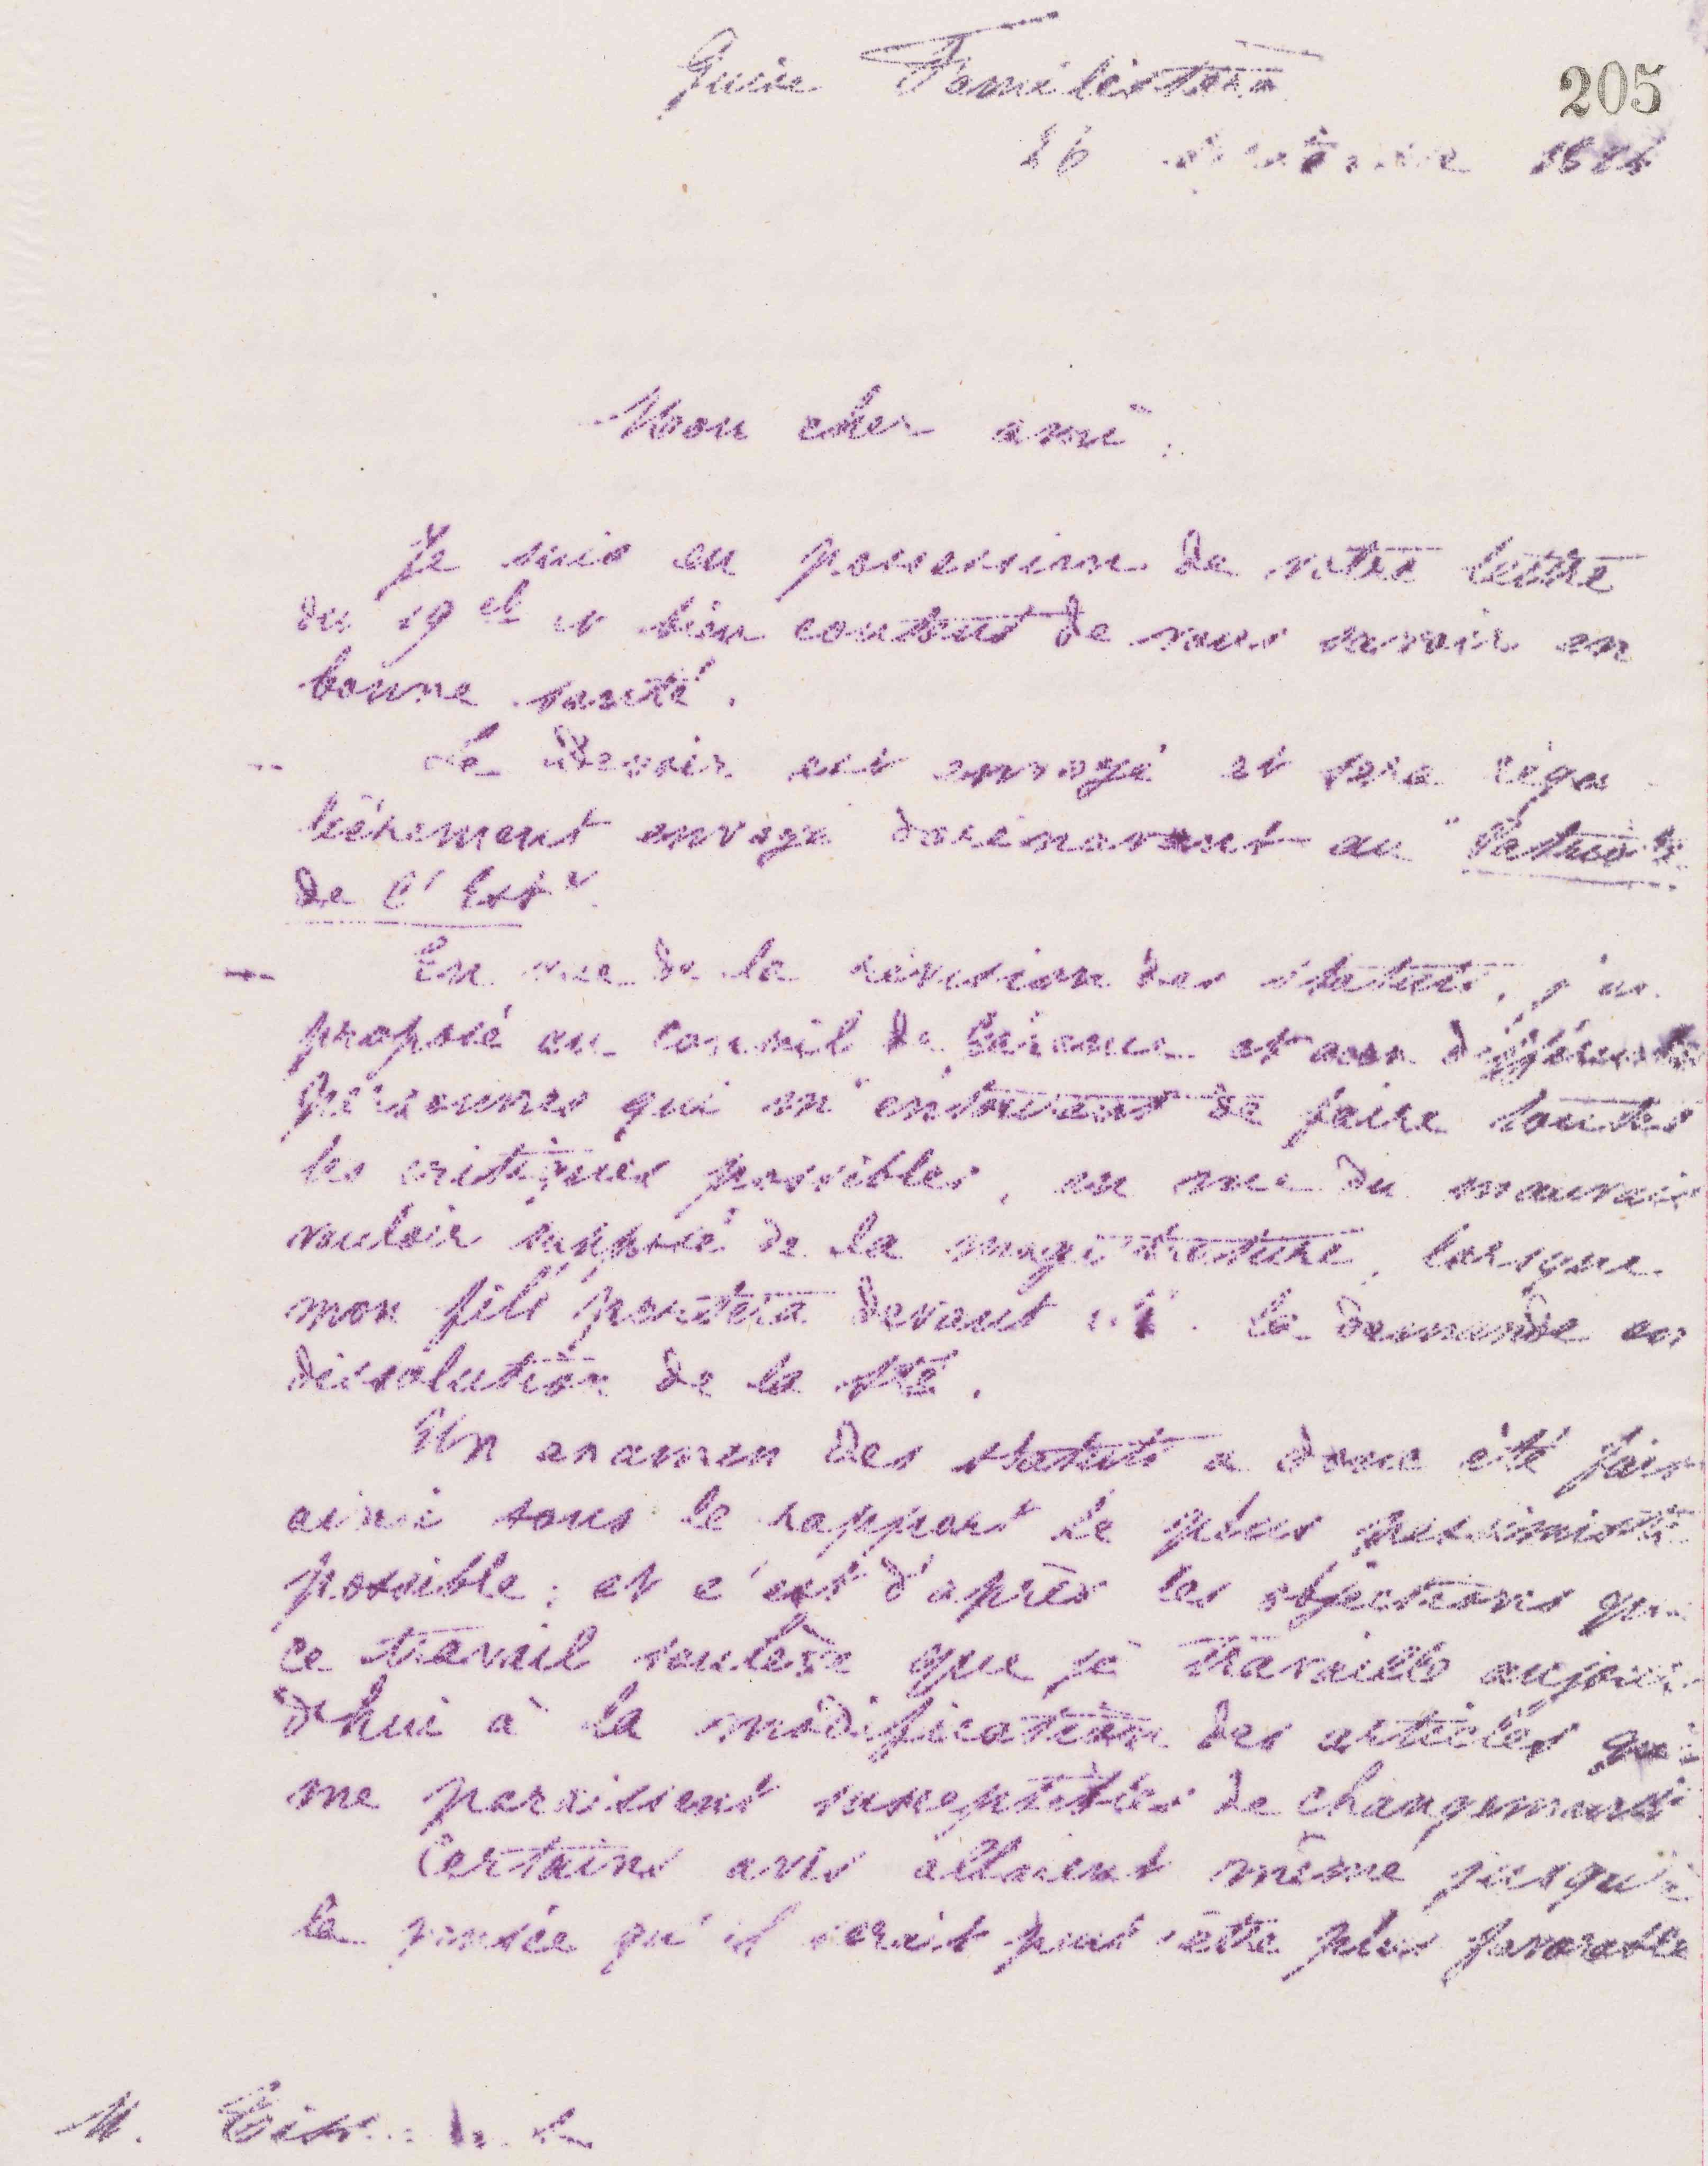 205
Guise Familistère
26
Mon cher ami,
Je suis en possession de votre lettre
du 19 ct et bien content de vous savoir en
bonne santé.
Le Devoir est envoyé et sera régu
lièrement envoyé dorénavant au "Patriote
de l'Est".
En vue de la révision des statuts, j'ai
proposé au Conseil de Gérance et aux différentes
personnes qui m'entourent de faire toutes
les critiques possibles, en vue du mauvais
vouloir supposé de la magistrature, lorsque
mon fils portera devant la demande en
dissolution de la Sté.
Un examen des statuts a donc été fait
ainsi sous le rapport le plus pessimiste
possible; et c'est d'après les objections que
ce travail soulève que je travaille aujour
d'hui à la modification des articles qui
me paraissent susceptibles de changement
Certains avis allaient même jusqu'à
la pensée qu'il serait peut être plus favorable
M.